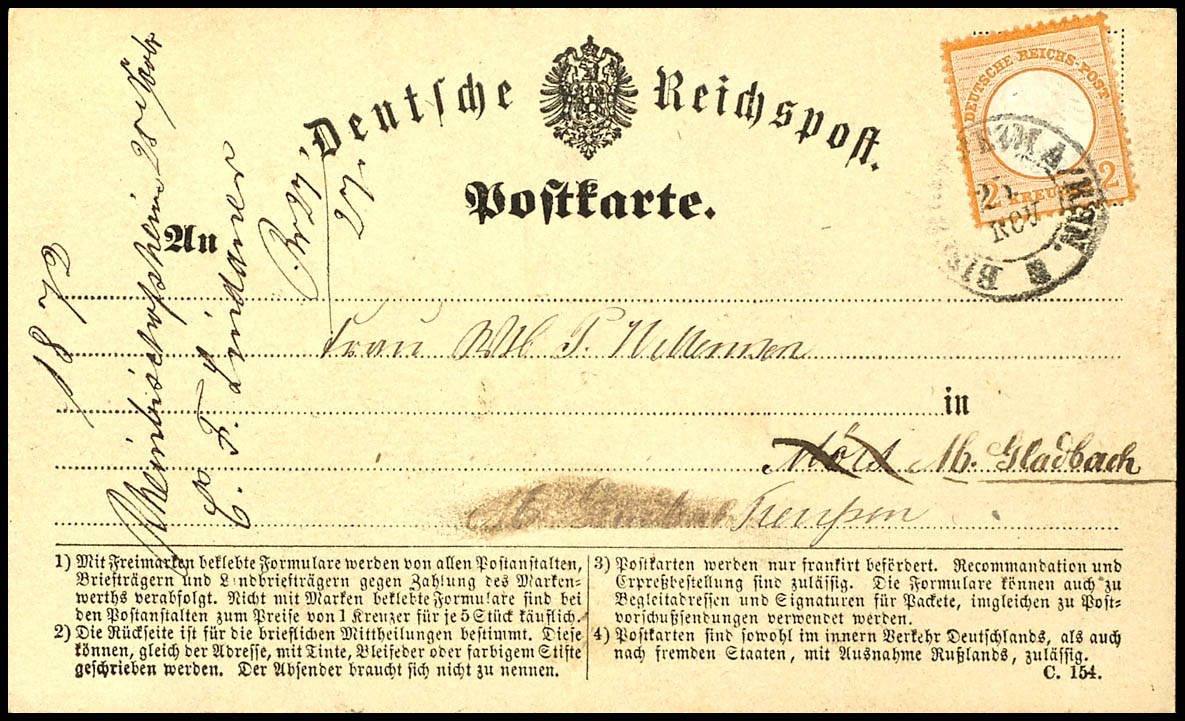 Deutsche Reichspost.
Postkarte.
DEUTSCHE REICHS-POST
2 KREUZER
25 NOV
An
1872
Rheinbischofsheim 25
C. F. Lindauer
27.
Frau P.
in
M. Gladbach
Preußen
1) Mit Freimarken beklebte Formulare werden von allen Postanstalten,
Briefträgern und Landbriefträgern gegen Zahlung des Marken-
werths verabfolgt. Nicht mit Marken beklebte Formulare sind bei
den Postanstalten zum Preise von 1 Kreuzer für je 5 Stück käuflich.
2) Die Rückseite ist für die brieflichen Mittheilungen bestimmt. Diese
können, gleich der Adresse, mit Tinte, Bleifeder oder farbigem Stifte
geschrieben werden. Der Absender braucht sich nicht zu nennen.
3) Postkarten werden nur frankirt befördert. Recommandation und
Expreßbestellung sind zulässig. Die Formulare können auch zu
Begleitadressen und Signaturen für Packete, imgleichen zu Post-
vorschußsendungen verwendet werden.
4) Postkarten sind sowohl im innern Verkehr Deutschlands, als auch
nach fremden Staaten, mit Ausnahme Rußlands, zulässig.
C. 154.